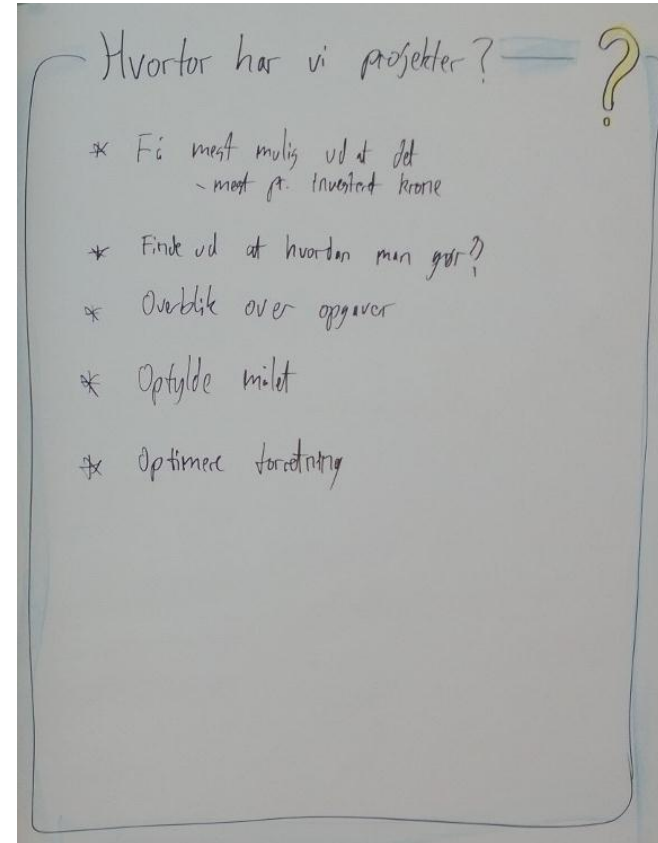 Hvorfor har vi projekter? ?
* Få mest mulig ud af det
- mest pr. investert krone
* Finde ud af hvordan man gør?
* Overblik over opgaver
* Opfylde målet
* Optimere forretning